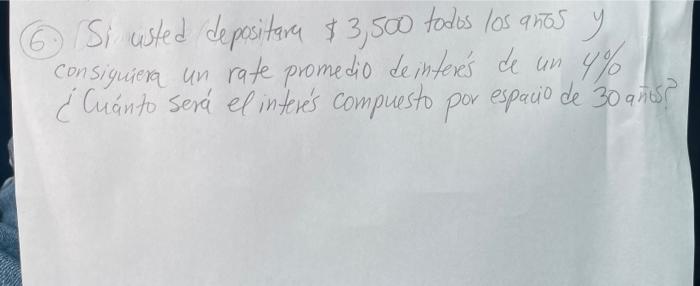 6. Si usted depositara $ 3,500 todos los años y
consiguiera un rate promedio de interés de un 4%
¿Cuánto será el interés compuesto por espacio de 30 años?